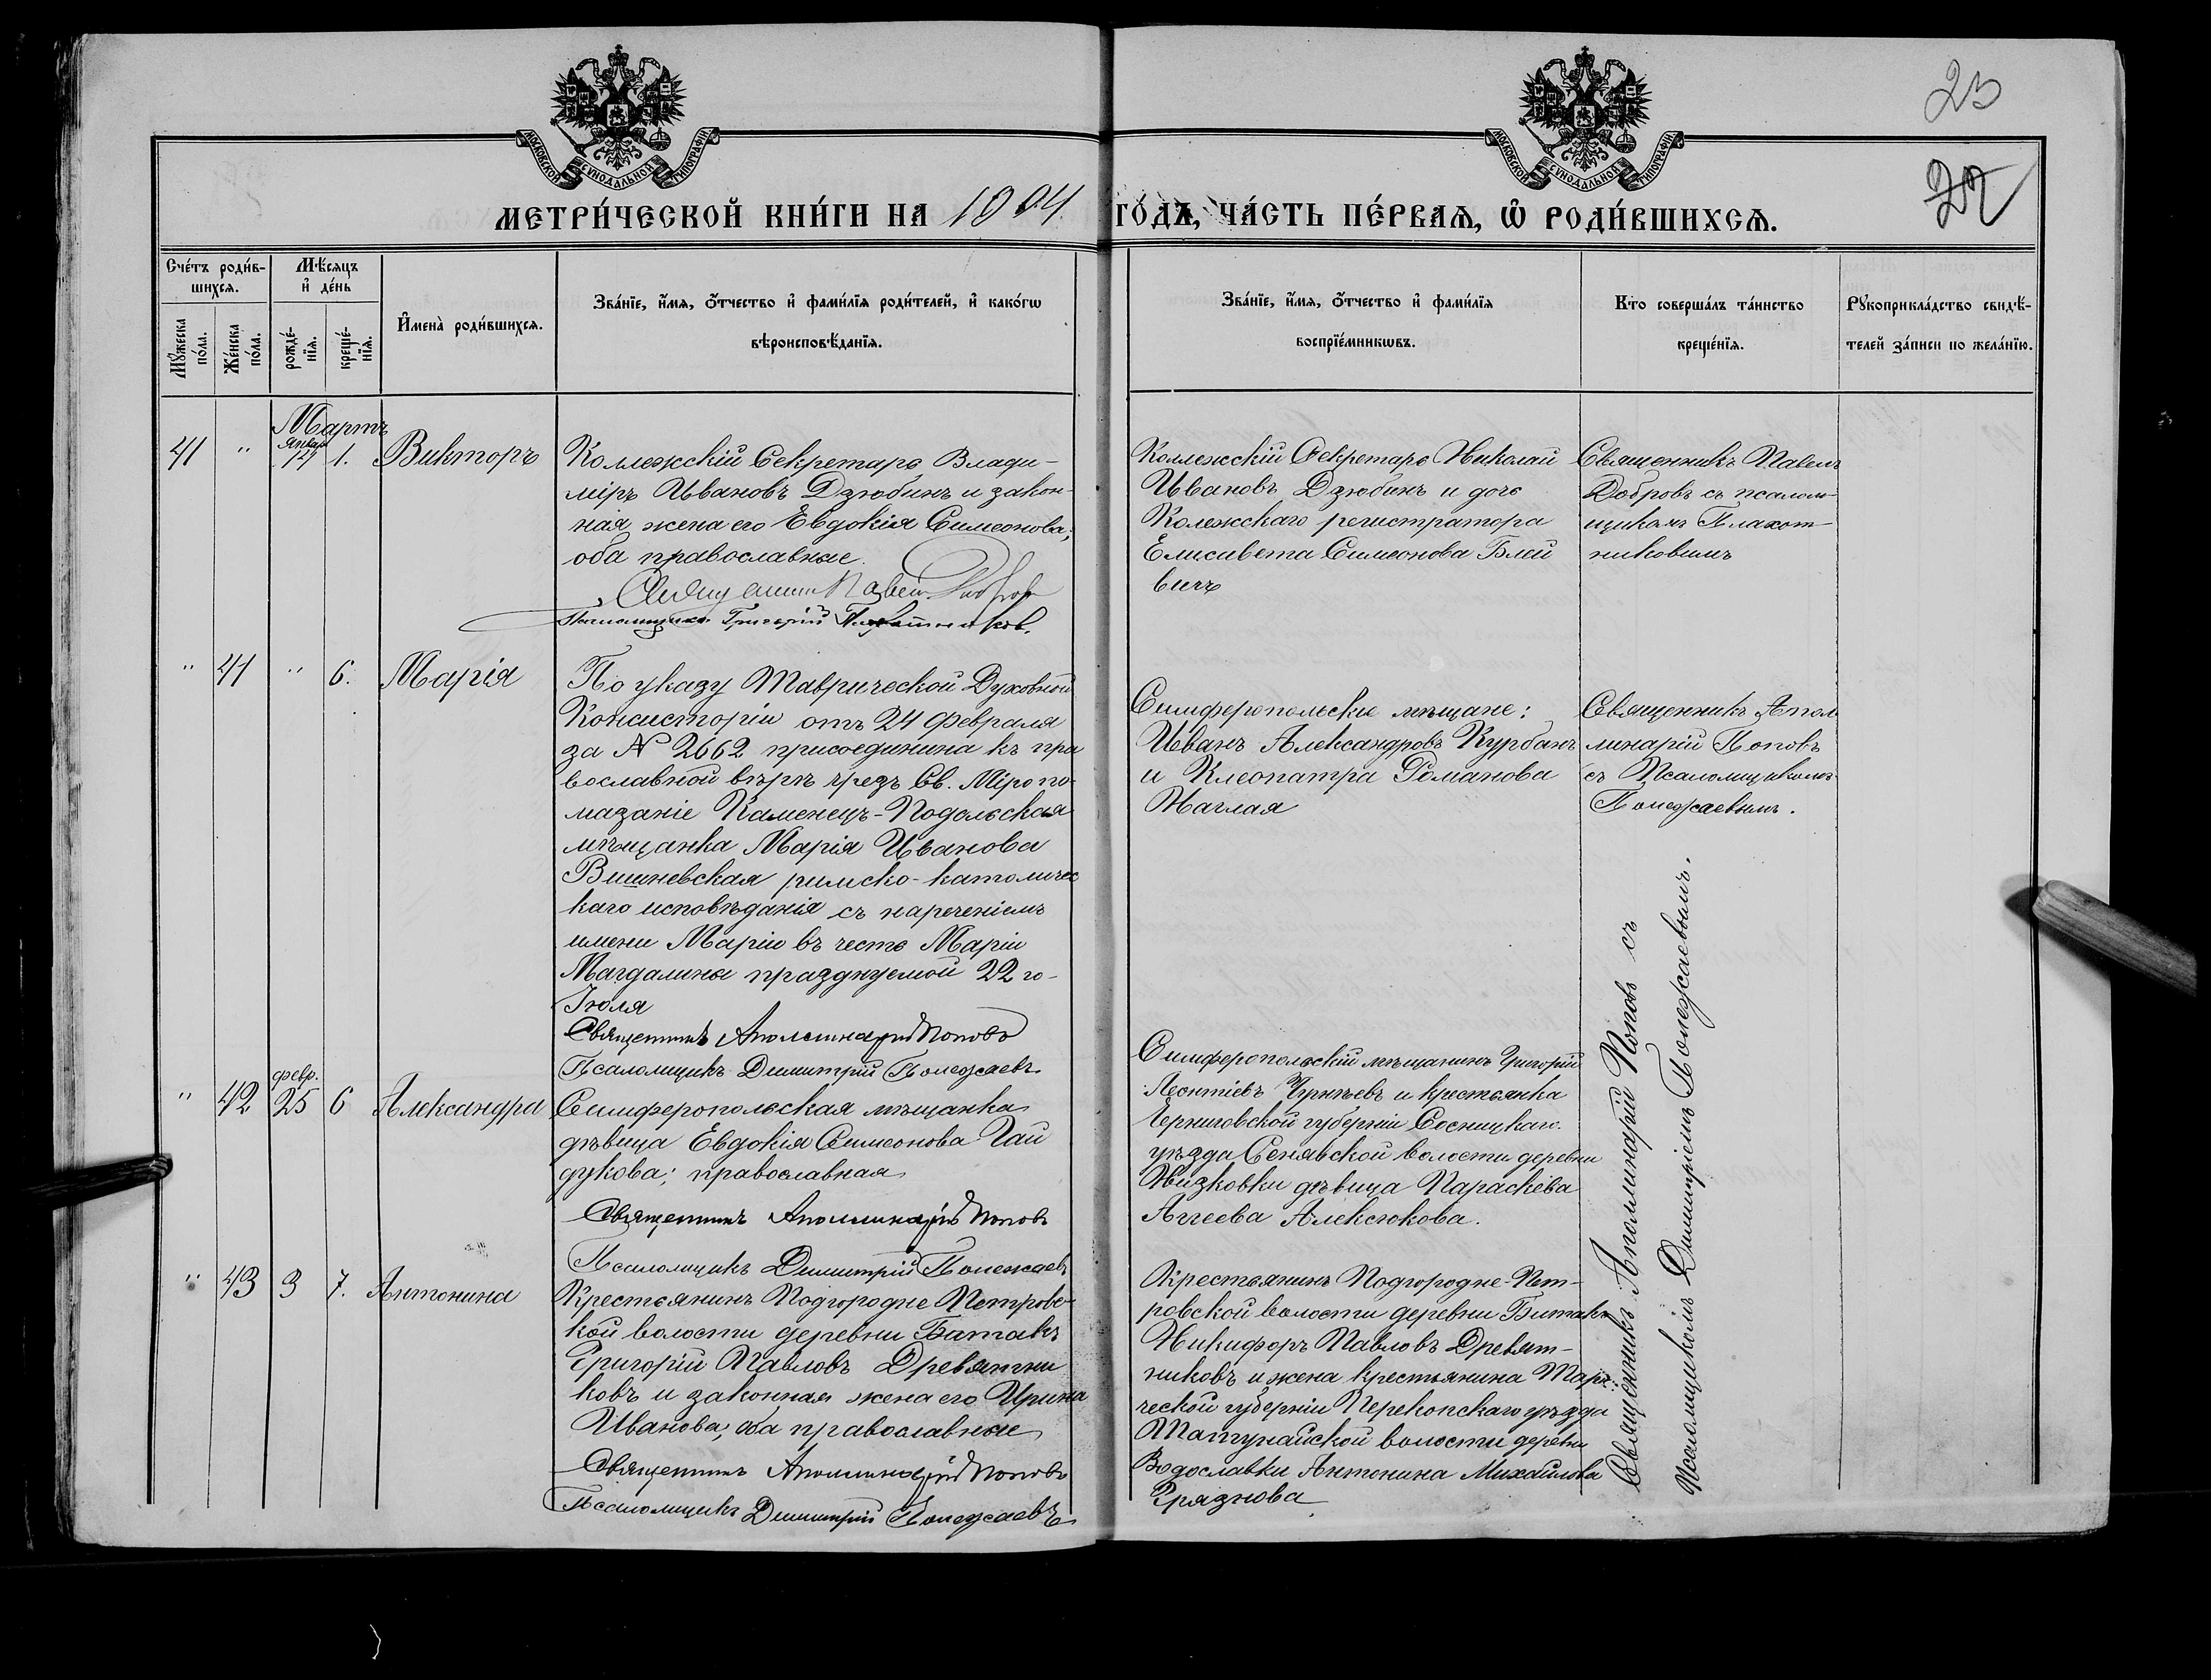 23
МОСКОВСКОЙ СУНОДАЛЬНОЙ ТИПОГРАФІИ
МОСКОВСКОЙ СУНОДАЛЬНОЙ ТИПОГРАФІИ
МЕТРИ́ЧЕСКОЙ КНИ́ГИ НА 1904 ГО́ДЪ, ЧА́СТЬ ПЕ́РВАѦ, Ѡ РОДИ́ВШИХСѦ.
Сче́тъ роди́в-
шихсѧ.
Мꙋ́жеска по́ла.
Же́нска по́ла.
Мѣ́сяцъ и де́нь
рожде́-
нїѧ.
креще́-
нїѧ.
И҆мена̀ роди́вшихсѧ.
Зва́нїе, и҆́мѧ, ѻ҆́тчество и҆ фами́лїѧ роди́телей, и҆ како́гѡ
вѣроисповѣ́данїѧ.
Зва́нїе, и҆́мѧ, ѻ҆́тчество и҆ фами́лїѧ
воспрїе́мникѡвъ.
Кто̀ соверша́лъ та́инство
креще́нїѧ.
Рꙋкоприкла́дство свидѣ́-
телей за́писи по жела́нїю.
Мартъ
41 " Январ 1. Викторъ
Коллежскій Секретарь Влади-
міръ Ивановъ Дзюбинъ и закон-
ная жена его Евдокія Симеонова;
оба православные.
Священникъ Павелъ Добровъ
Псаломщикъ Григорій Плахотниковъ.
Коллежскій Секретарь Николай
Ивановъ Дзюбинъ и дочь
Колежскаго регистратора
Елисавета Симеонова Блей
вичъ
Священникъ Павелъ
Добровъ съ псалом-
щикомъ Плахот-
никовымъ
" 41 " 6. Марія
По указу Таврической Духовной
Консисторіи отъ 24 Февраля
за № 2662 присоединина къ пра
вославной вѣрѣ чрезъ Св. Міропо-
мазаніе Каменецъ-Подольская
мѣщанка Марія Иванова
Вишневская римско-католичес
каго исповѣданія съ нареченіемъ
имени Маріи въ честь Маріи
Магдалины празднуемой 22 го-
Іюля
Священникъ Аполлинарій Поповъ
Псаломщикъ Димитрій Полежаевъ
Симферопольскіе мѣщане:
Иванъ Александровъ Курбанъ
и Клеопатра Романова
Наглая
Священникъ Апол
линарій Поповъ
съ Псаломщикомъ
Полежаевымъ.
" 42 февр. 25 6 Александра
Симферопольская мѣщанка
дѣвица Евдокія Симеонова Гай
дукова; православная
Священникъ Аполлинарій Поповъ
Псаломщикъ Димитрій Полежаевъ
Симферопольскій мѣщанинъ Григорій
Леонтіевъ и крестьянка
Черниговской губерніи Сосницкаго
уѣзда Сенявской волости деревни
Низковки дѣвица Параскева
Аггеева Алексюкова.
" 43 3 7. Антонина
Крестьянинъ Подгородне Петровс-
кой волости деревни Батакъ
Григорій Павловъ Древятни
ковъ и законная жена его Ирина
Иванова, оба православные
Священникъ Аполлинарій Поповъ
Псаломщикъ Димитрій Полежаевъ
Крестьянинъ Подгородне-Пет-
ровской волости деревни Битакъ
Никифоръ Павловъ Древят-
никовъ и жена крестьянина Таври
ческой губерніи Перекопскаго уѣзда
волости деревни
Водославки Антонина Михайлова
Грязнова
Священникъ Аполлинарій Поповъ съ
Псаломщикомъ Димитріемъ Полежаевымъ.